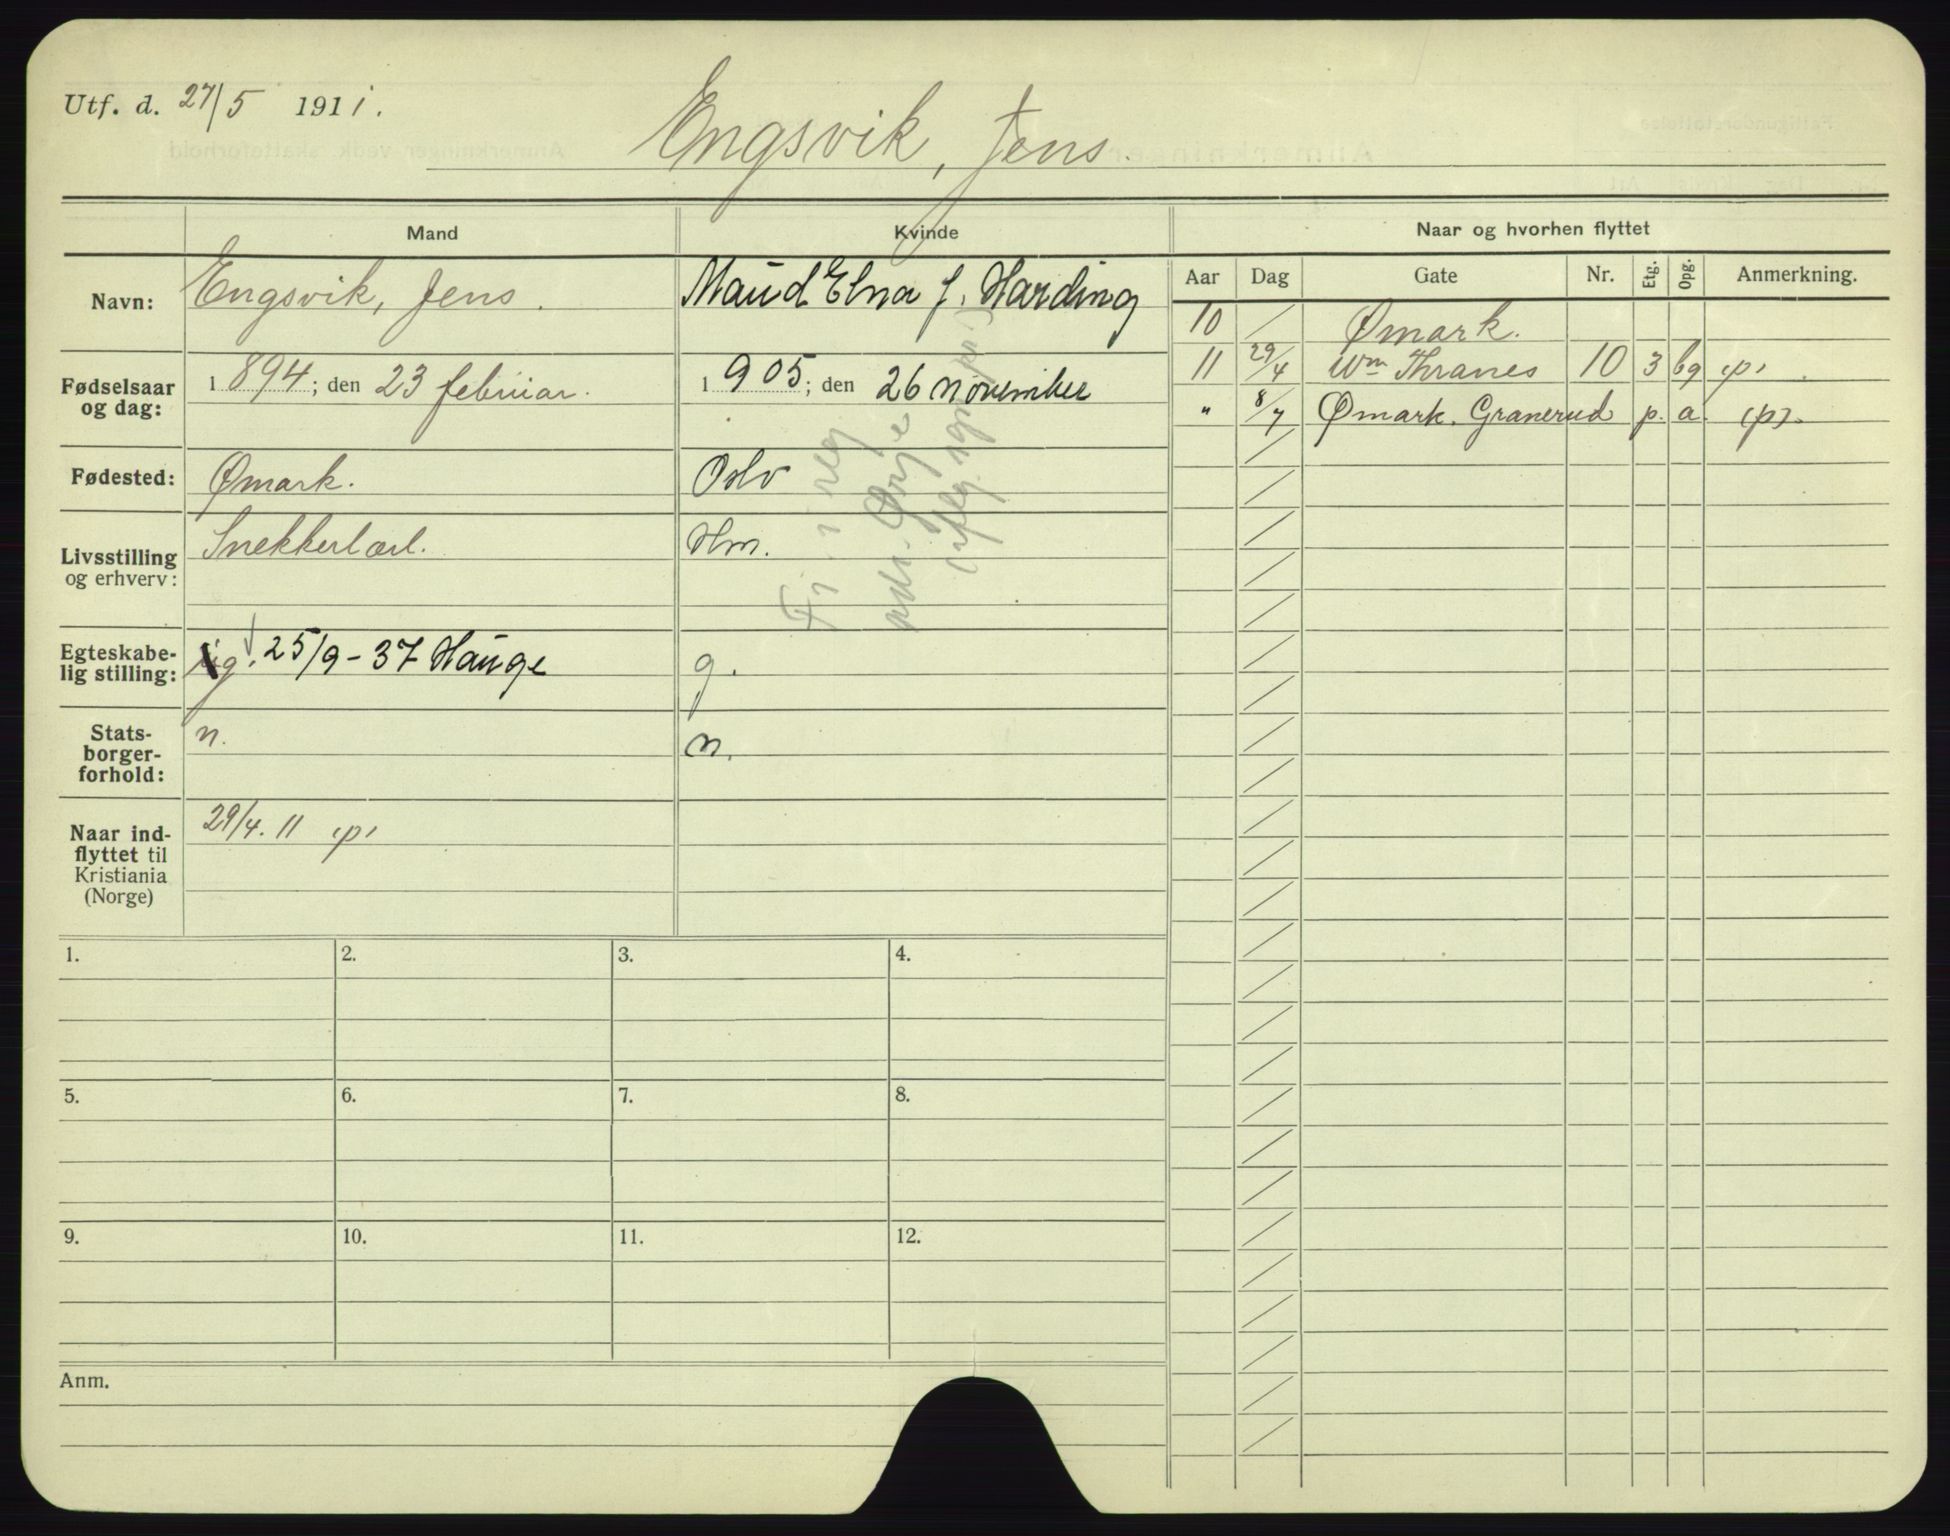 Utf. d. 27/5 1911.
Engsvik, Jens.
Mand Kvinde Naar og hvorhen flyttet
Navn: Engsvik, Jens. Maud Elna f. Harding
Aar Dag Gate Nr. Etg. Opg. Anmerkning.
10 / Ømark.
11 29/4 Wm Thranes 10 3 bg (p)
" 8/7 Ømark. Granerud p. a. (p).
Fødselsaar og dag: 1 894; den 23 februar. 1 905; den 26 november
Fødested: Ømark. Oslo
Livsstilling og erhverv: Snekkerlærl. Hm.
Egteskabelig stilling: g. 25/9-37 Hauge g.
Statsborgerforhold: n. n.
Naar indflyttet til Kristiania (Norge) 29/4. 11 (p)
1. 2. 3. 4.
5. 6. 7. 8.
9. 10. 11. 12.
Anm.